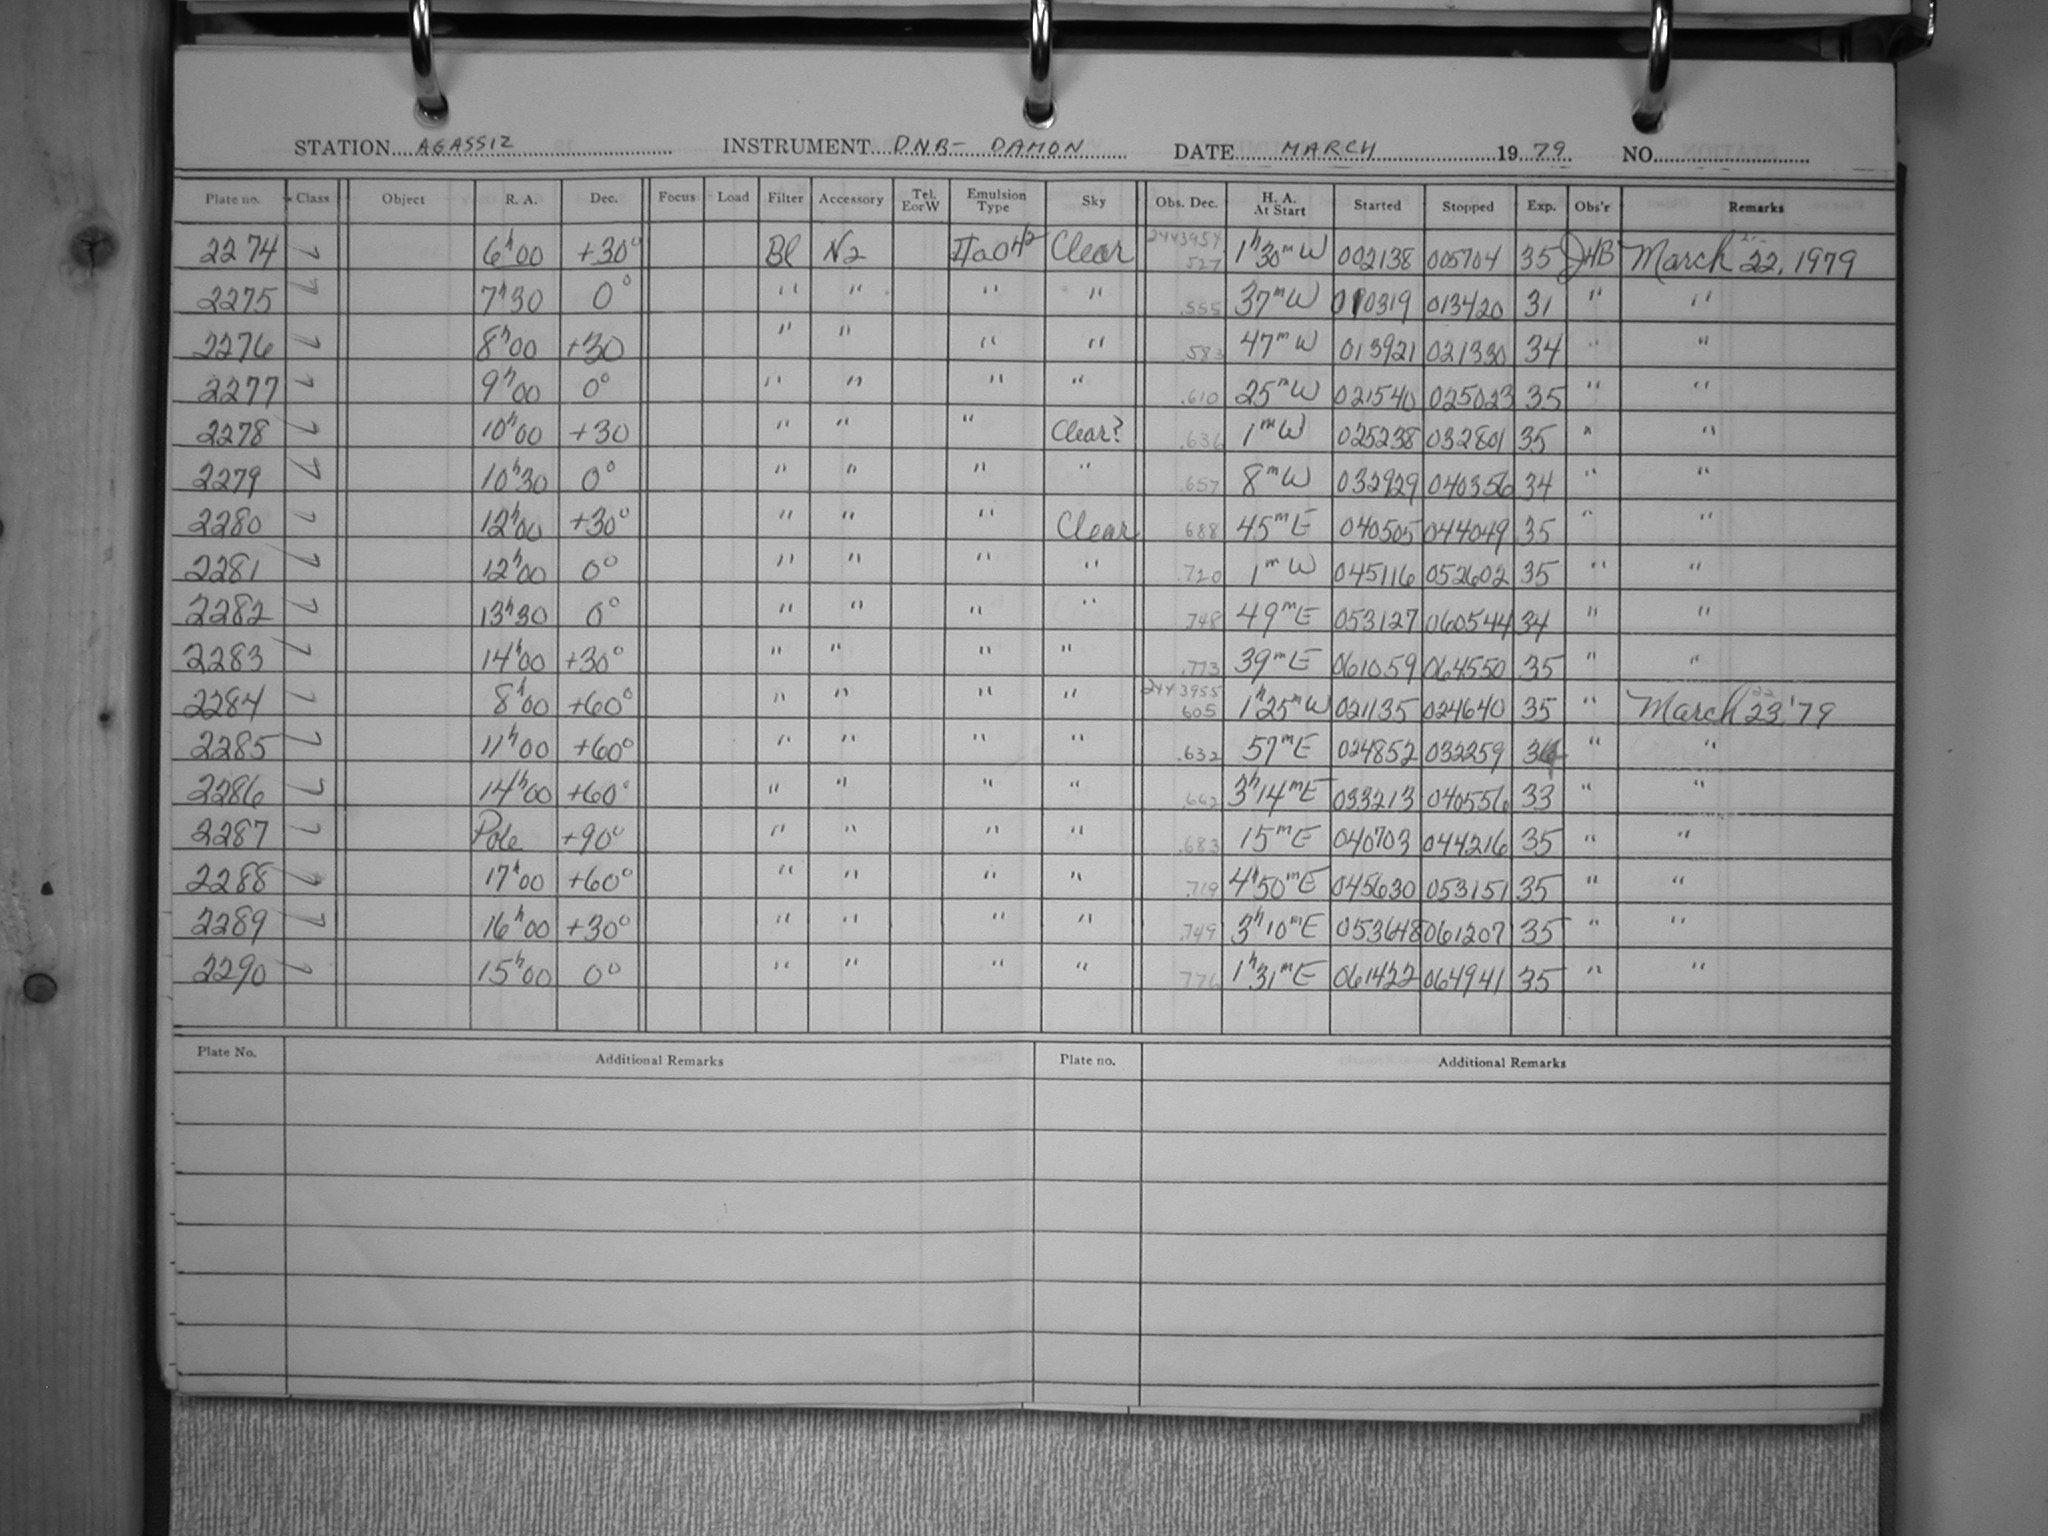 STATION AGASSIZ INSTRUMENT DNB- DAMON DATE MARCH 1979 NO.
Plate no. Class Object R. A. Dec. Focus Load Filter Accessory Tel. EorW Emulsion Type Sky Obs. Dec. H. A. At Start Started Stopped Exp. Obs'r Remarks
2274 7 6h00 +30° Bl N2 IIaO Clear 2443954 .527 1h30mW 002138 005704 35 JHB March 22, 1979
2275 7 7h30 0° " " " " .555 37mW 010319 013420 31 " "
2276 7 8h00 +30 " " " " .583 47mW 013921 021330 34 " "
2277 7 9h00 0° " " " " .610 25mW 021540 025023 35 " "
2278 7 10h00 +30 " " " Clear? .636 1mW 025238 032801 35 " "
2279 7 10h30 0° " " " " .657 8mW 032929 040356 34 " "
2280 7 12h00 +30° " " " Clear 688 45mE 040505 044049 35 " "
2281 7 12h00 0° " " " " .720 1mW 045116 052602 35 " "
2282 7 13h30 0° " " " " .748 49mE 053127 060544 34 " "
2283 7 14h00 +30° " " " " .773 39mE 061059 064550 35 " "
2284 7 8h00 +60° " " " " 2443955 605 1h25mW 021135 024640 35 " March 23, '79
2285 7 11h00 +60° " " " " .632 57mE 024852 032259 34 " "
2286 7 14h00 +60° " " " " .662 3h14mE 033213 040556 33 " "
2287 7 Pole +90° " " " " .683 15mE 040703 044216 35 " "
2288 7 17h00 +60° " " " " .719 4h50mE 045630 053151 35 " "
2289 7 16h00 +30° " " " " .749 3h10mE 053648 061207 35 " "
2290 7 15h00 0° " " " " 776 1h31mE 061422 064941 35 " "
Plate No. Additional Remarks Plate no. Additional Remarks